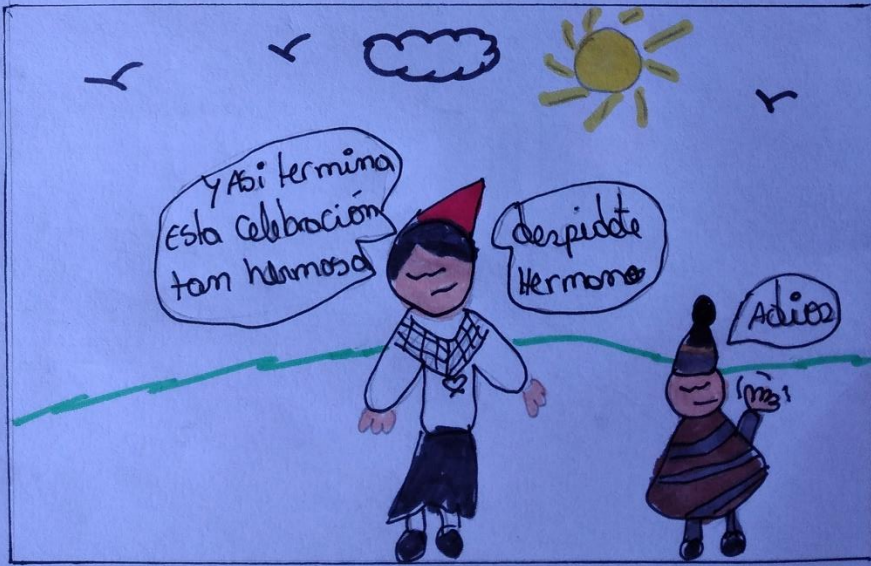 Y ASi termina
Esta Celebración
tan hermosa
despidete
Hermano
Adios